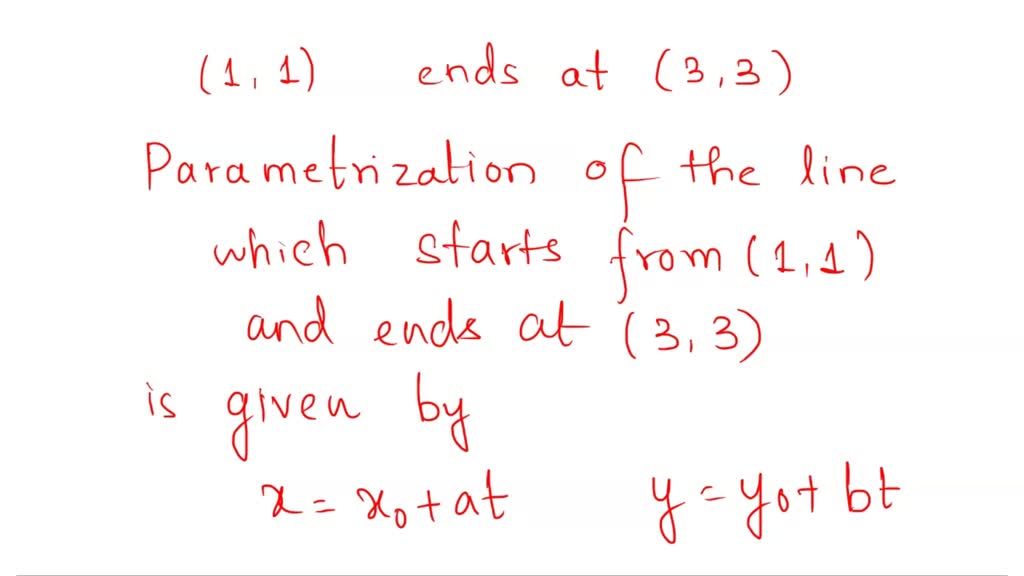 (1, 1) ends at (3, 3)
Parametrization of the line
which starts from (1, 1)
and ends at (3, 3)
is given by
x = x₀ + at y = y₀ + bt